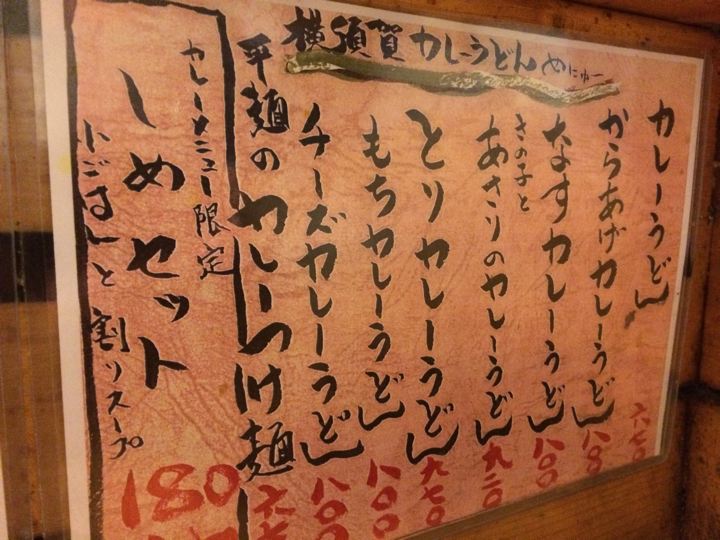 横須賀カレーうどんめにゅー
カレーうどん 六七〇
からあげカレーうどん 八〇〇
なすカレーうどん 八〇〇
きの子と
あさりのカレーうどん 九二〇
とりカレーうどん 九七〇
もちカレーうどん 八〇〇
チーズカレーうどん 八〇〇
平麺のカレーつけ麺 六七
カレーメニュー限定
しめセット
小ごはんと割りスープ
180